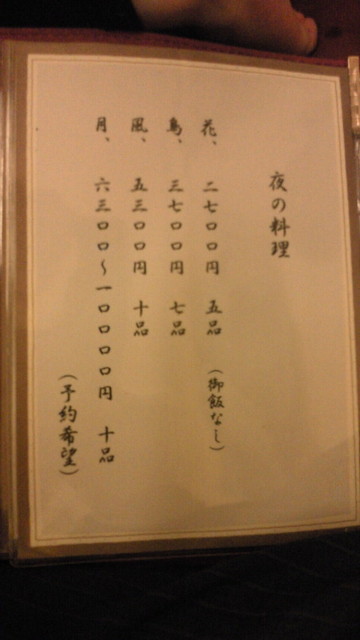 夜の料理
花、 二七〇〇円 五品 (御飯なし)
鳥、 三七〇〇円 七品
風、 五三〇〇円 十品
月、 六三〇〇～一〇〇〇〇円 十品
(予約希望)